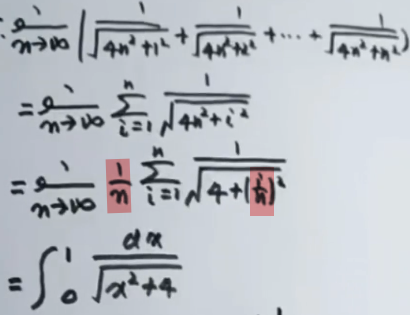 lim n→∞ ( 1/√(4n²+1²) + 1/√(4n²+2²) + ··· + 1/√(4n²+n²) )
= lim n→∞ ∑ i=1 n 1/√(4n²+i²)
= lim n→∞ 1/n ∑ i=1 n 1/√(4+(i/n)²)
= ∫₀¹ dx/√(x²+4)